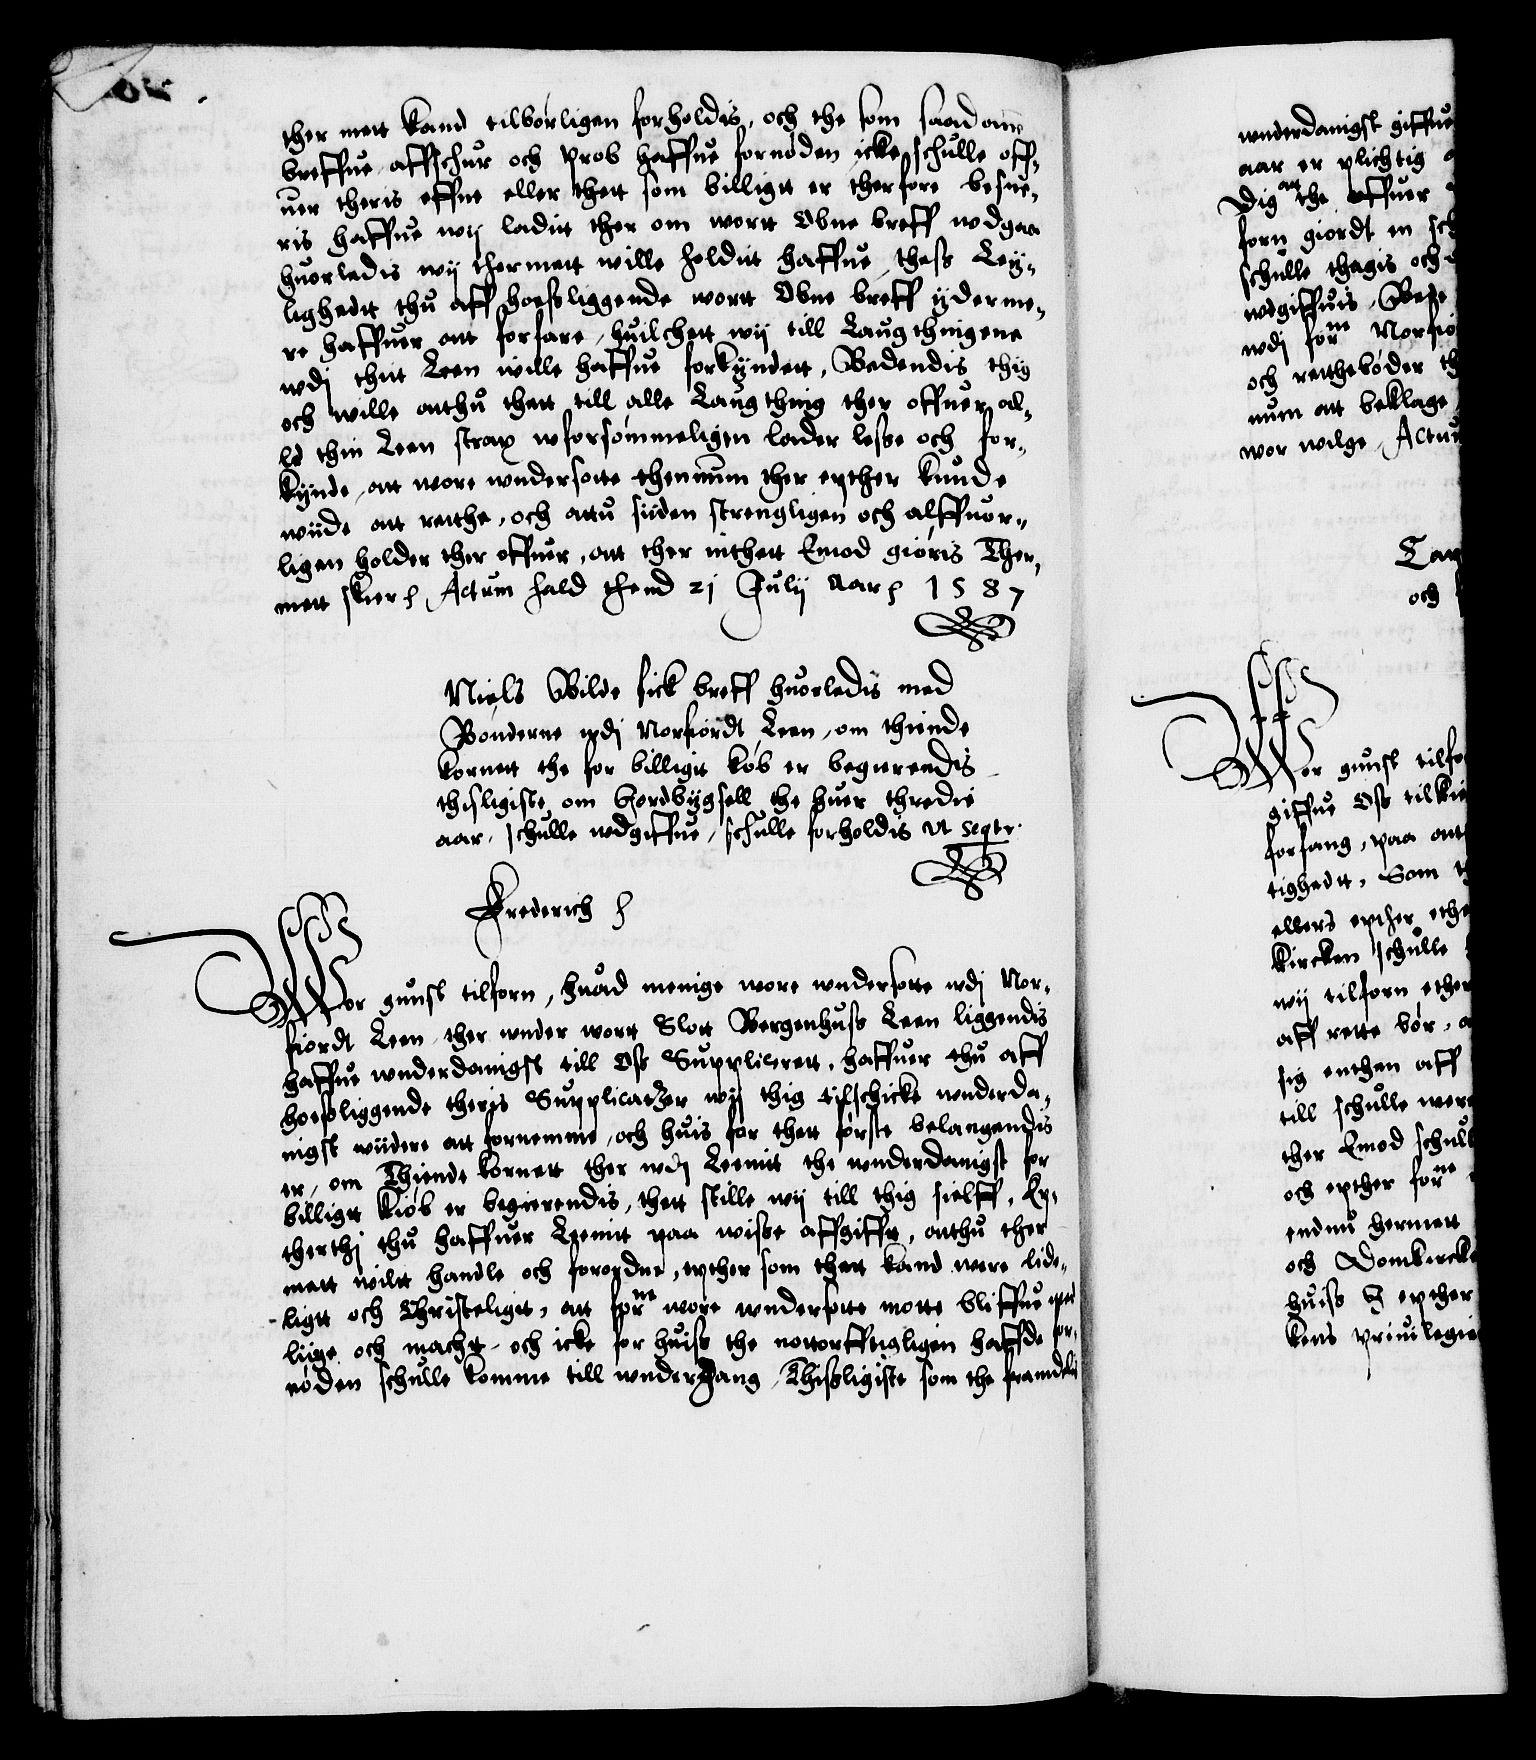 ther mett kand tilbörligen forholdis, och the som saadann
breffue affschur och prob haffue fornöden icke schulle off-
uer theris effne eller thett som billigtt er therfore besue-
ris haffue wij ladiitt ther om wortt Obne breff wdgaa
huorledis wij thermett wille holdiit haffue, thess Ley-
lighedtt thu aff hoessliggende wortt Obne breff yderme-
re haffuer att forfare, huilchett wij till Laugthingene
wdj thiit Leen wille haffue forkyndett, Bedendis thig
och wille atthu thett till alle Laugthing ther offuer al-
ld thin Leen strax wforsömmeligen lader lesse och for-
kynde, att wore wndersotte thennum ther epther kunde
wiide att rette, och attu siiden strengligen och alffuor-
ligen holder ther offuer, att ther inthett Emod giöris Ther,
mett skier Actum hald thend 21 Julij Aar 1587
Niels Bilde fick breff huorledis med
Bonderne wdj Norfiordt Leen, om thiende
kornett the for billigtt köb er begierendis
thisligiste om bordbygsell the huer thredie
aar, schulle wdgiffue, schulle forholdis vt seqtr.
Frederich
Wor gunst tilforn, huad menige wore wndersotte wdj Nor-
fiordt Leen ther wnder wortt Slott Bergenhuss Leen liggendis
haffue wnderdanigst till Oss Supplicerett, haffuer thu aff
hoessliggende theris Supplicatzer wij thig tilschicke wnderda-
nigst wiidere att fornemme, och huis for thett förste belangendis
er, om Thiende kornett ther wdj Leenit the wnderdanigst for
billigtt kiöb er begierendis, thett stille wij till thig sielff, Ep-
therthj thu haffuer Leenit paa wisse affgifft, atthu ther
mett wiltt handle och forordne, epther som thett kand were lide-
ligtt och Christeligtt, att forne wore wndersotte motte bliffue wed
liige och machtt, och icke for huiss the nottorfftigligen haffde for-
nöden schulle komme till wndergang, Thissligiste som the framdelis
wnderdanigst giffue
aar er plichtig
Dig att the offuer
forn giordt en sch
schulle thagis och
wdgiffuis, Bede
wdj forne Norfio
och retthebøder th
num att beklage
wor wilge, Actu
Cap
och
Wor gunst tilfo
giffue Oss tilkie
forfang, paa ant
tighedtt, Som th
ellers epther ethe
Kircken schulle
wij tilforn ether
aff rette bör, a
sig enthen aff
till schulle were
ther Emod schull
och epther forne
endnu hermett
och Domkircke
huiss epther
kens priuilegie